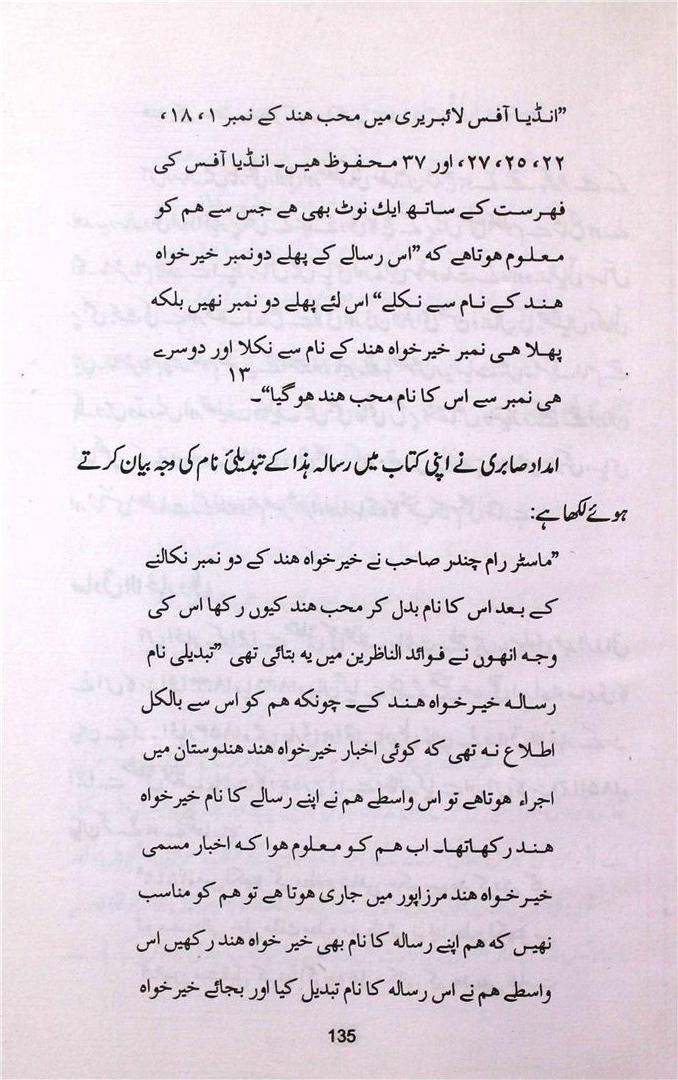 ”انڈیا آفس لائبریری میں محب ھند کے نمبر ۱، ۱۸،
۲۲، ۲۵، ۲۷، اور ۳۷ محفوظ ھیں۔ انڈیا آفس کی
فھرست کے ساتھ ایك نوٹ بھی ھے جس سے ھم کو
معلوم ھوتاھے که ”اس رسالے کے پھلے دونمبر خیرخواہ
ھند کے نام سے نکلے“ اس لئے پھلے دو نمبر نھیں بلکه
پھلا ھی نمبر خیرخواہ ھند کے نام سے نکلا اور دوسرے
ھی نمبر سے اس کا نام محب ھند ھوگیا“۔۱۳
امداد صابری نے اپنی کتاب میں رسالہ ہذا کے تبدیلیٔ نام کی وجہ بیان کرتے
ہوئے لکھا ہے:
”ماسٹر رام چندر صاحب نے خیرخواہ ھند کے دو نمبر نکالنے
کے بعد اس کا نام بدل کر محب ھند کیوں رکھا اس کی
وجه انھوں نے فوائد الناظرین میں یه بتائی تھی ”تبدیلی نام
رساله خیرخواہ ھند کے۔ چونکه ھم کو اس سے بالکل
اطلاع نه تھی که کوئی اخبار خیرخواہ ھند ھندوستان میں
اجراء ھوتاھے تو اس واسطے ھم نے اپنے رسالے کا نام خیرخواہ
ھند رکھاتھا۔ اب ھم کو معلوم ھوا که اخبار مسمی
خیرخواہ ھند مرزاپور میں جاری ھوتا ھے تو ھم کو مناسب
نھیں که ھم اپنے رساله کا نام بھی خیر خواہ ھند رکھیں اس
واسطے ھم نے اس رساله کا نام تبدیل کیا اور بجائے خیرخواہ
135